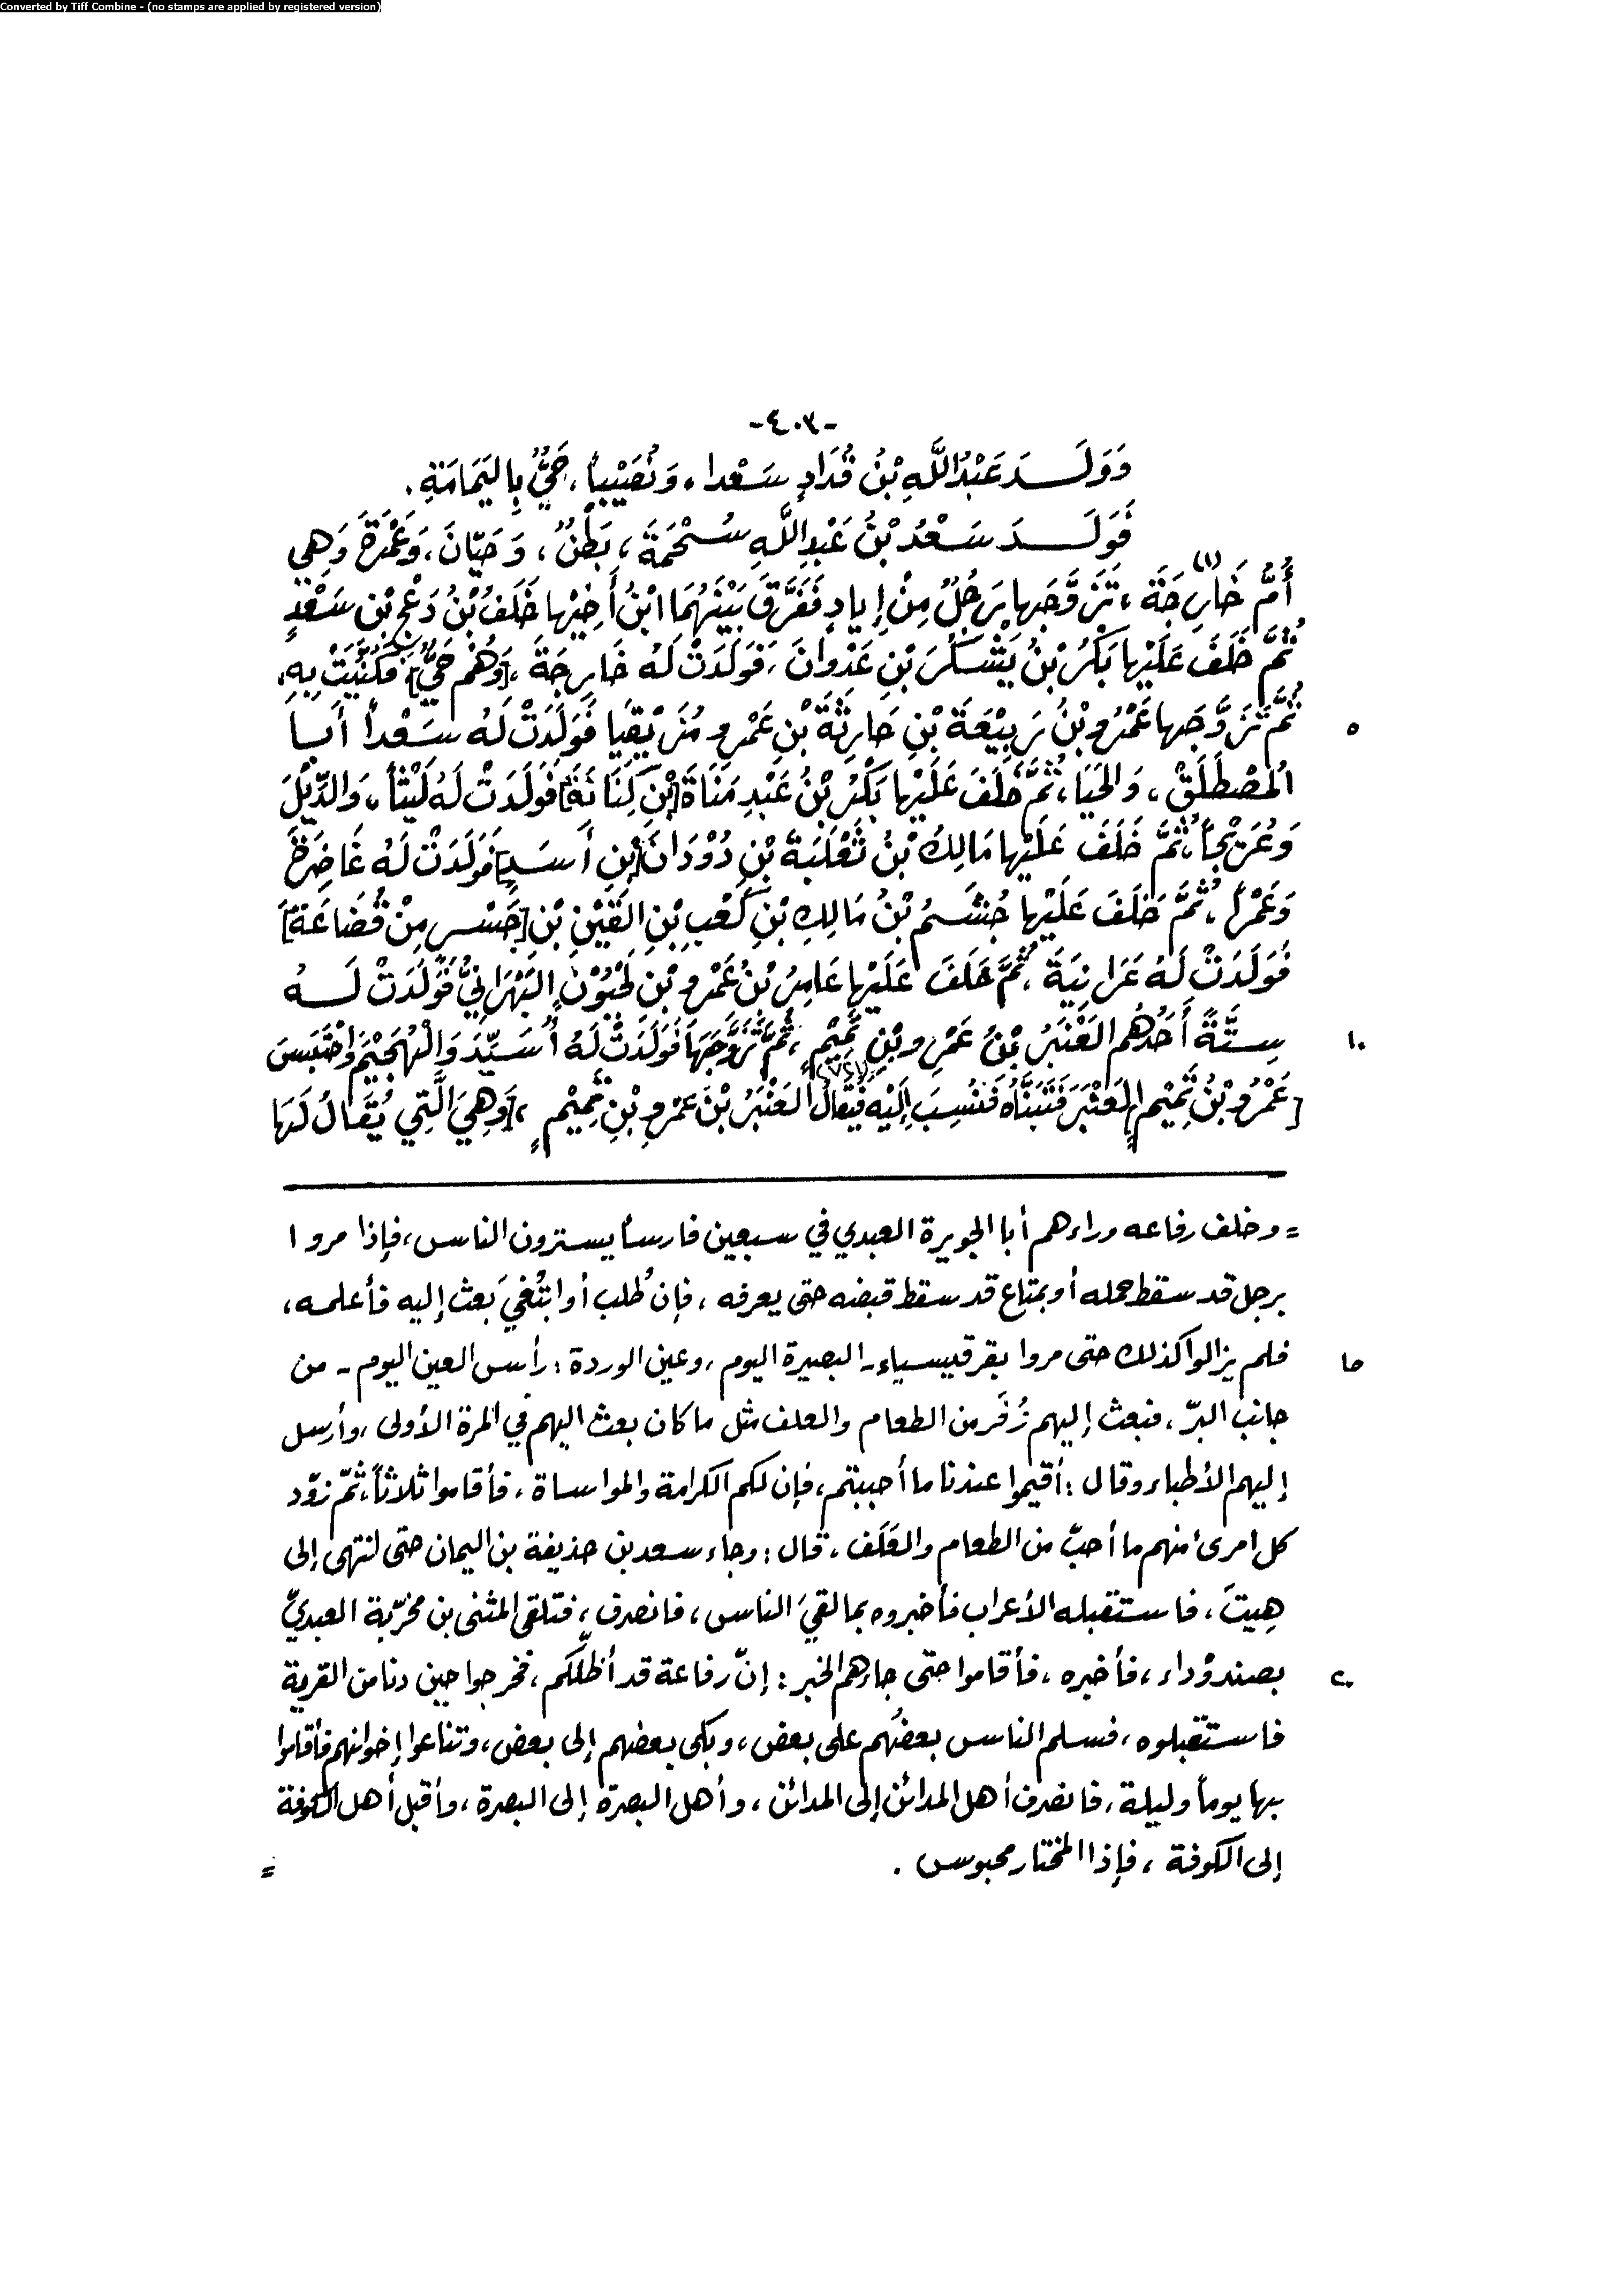 Converted by Tiff Combine - (no stamps are applied by registered version)
-٤٠٣-
وَوَلَدَ عَبْدُ اللَّهِ بْنُ قُدَادٍ سَعْداً، وَنُصَيْباً، حَيٌّ بِاليَمَامَةِ.
فَوَلَدَ سَعْدُ بْنُ عَبْدِ اللَّهِ سُحْمَةَ، بَطْنٌ، وَحَيّانَ، وَعَمْرَةَ وَهِي
أُمُّ خَارِجَةَ(١)، تَزَوَّجَها رَجُلٌ مِنْ إِيادٍ فَفَرَّقَ بَيْنَهُمَا ابْنُ أَخِيْها خَلَفُ بْنُ دَعْجِ بْنِ سَعْدٍ
ثُمَّ خَلَفَ عَلَيْها بَكْرُ بْنُ يَشْكُرَ بْنِ عَدْوانَ، فَوَلَدَتْ لَهُ خَارِجَةَ، [وَهُم حَيٌّ]، فَكُنِّيَتْ بِهِ،
ثُمَّ تَزَوَّجَها عَمْرُو بْنُ رَبِيْعَةَ بْنِ حَارِثَةَ بْنِ عَمْرٍو مُزَيْقِيَا فَوَلَدَتْ لَهُ سَعْداً أَبا
٥
المُصْطَلَقْ، وَالحَيَا، ثُمَّ خَلَفَ عَلَيْها بَكْرُ بْنُ عَبْدِ مَنَاةَ [بْنِ كِنَانَةَ] فَوَلَدَتْ لَهُ لَيْثاً، وَالدِّيْلَ
وَعُرَيْجاً، ثُمَّ خَلَفَ عَلَيْها مَالِكُ بْنُ ثَعْلَبَةَ بْنِ دُوْدَانَ [بْنِ أَسَدٍ] فَوَلَدَتْ لَهُ غَاضِرَةَ
وَعَمْراً، ثُمَّ خَلَفَ عَلَيْها جُشَمُ بْنُ مَالِكِ بْنِ كَعْبِ بْنِ القَيْنِ بْنِ [جَسْرٍ مِنْ قُضَاعَةَ]
فَوَلَدَتْ لَهُ عَرَانِيَةَ، ثُمَّ خَلَفَ عَلَيْها عَامِرُ بْنُ عَمْرِو بْنِ لَحْيُوْنَ البَهْرَانِيُّ فَوَلَدَتْ لَهُ
سِتَّةً أَحَدُهُم العَنْبَرُ بْنُ عَمْرِو بْنِ تَمِيْمٍ، ثُمَّ تَزَوَّجَهَا فَوَلَدَتْ لَهُ أُسَيِّدَ وَالْهُجَيْمَ وَاحْتَبَسَ
١٠
[عَمْرُو بْنُ تَمِيْمٍ] العَنْبَرَ فَتَبَنَّاهُ فَنُسِبَ إِلَيْهِ فَيُقالُ العَنْبَرُ بْنُ عَمْرِو بْنِ تَمِيْمٍ، [وَهِيَ الَّتِي يُقَالُ لَهَا
= وخلف رفاعه وراءهم أبا الجويرة العبدي في سبعين فارساً يسترون الناس، فإذا مروا
برجل قد سقط حمله أو بمتاع قد سقط قبضه حتى يعرفه، فإن طُلب أو ابتُغيَ بعث إليه فأعلمه،
فلم يزالوا كذلك حتى مروا بقرقيسياء- البصيرة اليوم، وعين الوردة: رأس العين اليوم- من
١٥
جانب البرّ، فبعث إليهم زُفَر من الطعام والعلف مثل ما كان بعث اليهم في المرة الأولى، وأرسل
إليهم الأطباء وقال: أقيموا عندنا ما أحببتم، فإن لكم الكرامة والمواساة، فأقاموا ثلاثاً، ثمّ زوّد
كل امرئ منهم ما أحبّ من الطعام والعَلَف، قال: وجاء سعد بن حذيفة بن اليمان حتى انتهى إلى
هِيتَ، فاستقبله الأعراب فأخبروه بما لقيَ الناس، فانصرف، فتلقى المثنى بن مخرّبة العبديَّ
بصندوْداء، فأخبره، فأقاموا حتى جاءهم الخبر: إنّ رفاعة قد أظلّكم، فخرجوا حين دنا من القرية
٢٠
فاستقبلوه، فسلم الناس بعضُهم على بعض، وبكى بعضهم إلى بعض، وتناعوا إخوانهم فأقاموا
بها يوماً وليلة، فانصرف أهل المدائن إلى المدائن، وأهل البصرة إلى البصرة، وأقبل أهل الكوفة
إلى الكوفة، فإذا المختار محبوس.
=